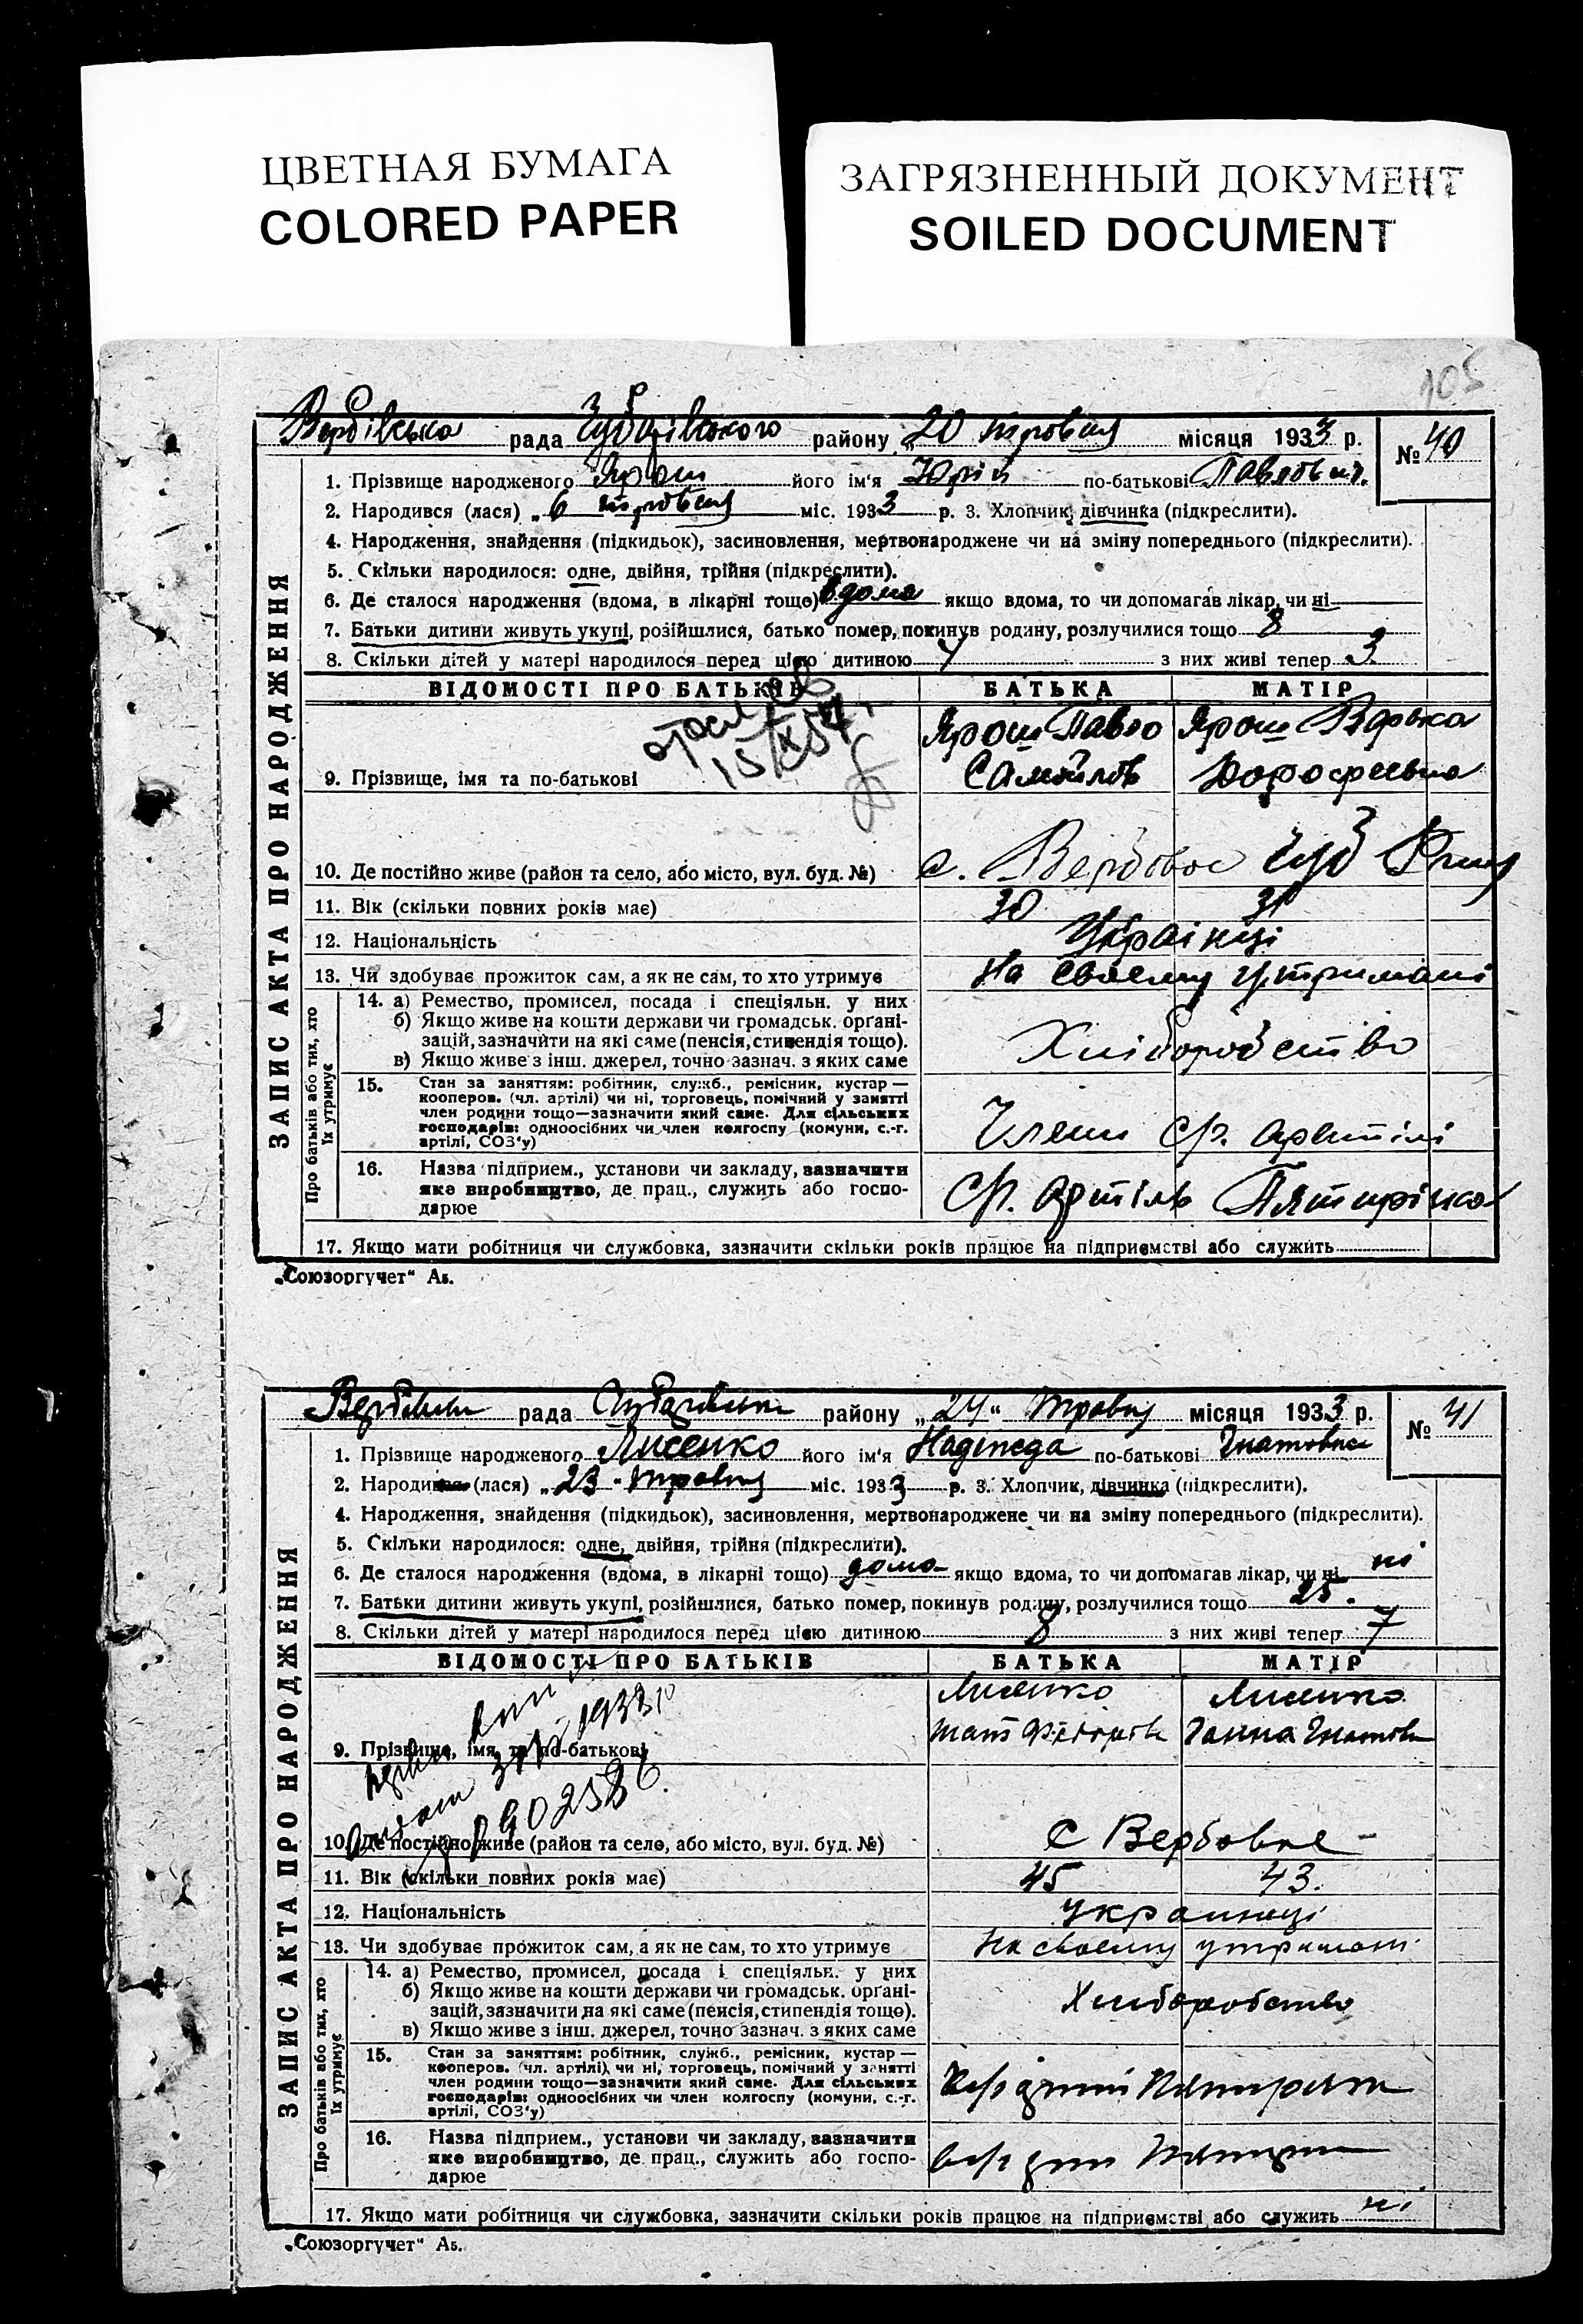 ЦВЕТНАЯ БУМАГА
COLORED PAPER
ЗАГРЯЗНЕННЫЙ ДОКУМЕНТ
SOILED DOCUMENT
105
Вербівська рада Чубарівського району „20 травня місяця 1933 р. № 40
1. Прізвище народженого Ярош його ім'я Юрій по-батькові Павлович.
2. Народився (лася) „6 травня міс. 1933 р. 3. Хлопчик, дівчинка (підкреслити).
4. Народження, знайдення (підкидьок), засиновлення, мертвонароджене чи на зміну попереднього (підкреслити).
5. Скільки народилося: одне, двійня, трійня (підкреслити).
6. Де сталося народження (вдома, в лікарні тощо) вдома якщо вдома, то чи допомагав лікар, чи ні
7. Батьки дитини живуть укупі, розійшлися, батько помер, покинув родину, розлучилися тощо 8
8. Скільки дітей у матері народилося перед цією дитиною 4 з них живі тепер 3.
ЗАПИС АКТА ПРО НАРОДЖЕННЯ
ВІДОМОСТІ ПРО БАТЬКІВ БАТЬКА МАТІР
Ярош Павло Ярош Варька
9. Прізвище, імя та по-батькові Самойлов Дорофеевна
10. Де постійно живе (район та село, або місто, вул. буд. №) с. Вербовое Чуб
11. Вік (скільки повних років має) 30 31
12. Національність Українці
13. Чи здобуває прожиток сам, а як не сам, то хто утримує на своему утримані
Про батьків або тих, хто їх утримує
14. а) Ремество, промисел, посада і спеціяльн. у них
б) Якщо живе на кошти держави чи громадськ. органі-
зацій, зазначити на які саме (пенсія, стипендія тощо).
в) Якщо живе з інш. джерел, точно зазнач. з яких саме
Хліборобство
15. Стан за заняттям: робітник, служб., ремісник, кустар —
кооперов. (чл. артілі) чи ні, торговець, помічний у занятті
член родини тощо—зазначити який саме. Для сільських
господарів: одноосібних чи член колгоспу (комуни, с.-г.
артілі, СОЗ'у)
Члени с/г. артілі
16. Назва підприєм., установи чи закладу, зазначити
яке виробництво, де прац., служить або госпо-
дарює
С/г. артіль Пятирічка
17. Якщо мати робітниця чи службовка, зазначити скільки років працює на підприємстві або служить
„Союзоргучет“ Аб.
рада району „24“ травня місяця 1933 р. № 41
1. Прізвище народженого Лисенко його ім'я Надежда по-батькові Гнатовна
2. Народилася (лася) „23 “ травня міс. 1933 р. 3. Хлопчик, дівчинка (підкреслити).
4. Народження, знайдення (підкидьок), засиновлення, мертвонароджене чи на зміну попереднього (підкреслити).
5. Скільки народилося: одне, двійня, трійня (підкреслити).
6. Де сталося народження (вдома, в лікарні тощо) дома якщо вдома, то чи допомагав лікар, чи ні ні
7. Батьки дитини живуть укупі, розійшлися, батько помер, покинув родину, розлучилися тощо 25.
8. Скільки дітей у матері народилося перед цією дитиною 8 з них живі тепер 7
ЗАПИС АКТА ПРО НАРОДЖЕННЯ
ВІДОМОСТІ ПРО БАТЬКІВ БАТЬКА МАТІР
Лисенко Лисенко
9. Прізвище, імя та по-батькові Ганна
10. Де постійно живе (район та село, або місто, вул. буд. №) С Вербовое
11. Вік (скільки повних років має) 45 43.
12. Національність Украинці
13. Чи здобуває прожиток сам, а як не сам, то хто утримує На своему утримані
Про батьків або тих, хто їх утримує
14. а) Ремество, промисел, посада і спеціяльн. у них
б) Якщо живе на кошти держави чи громадськ. органі-
зацій, зазначити на які саме (пенсія, стипендія тощо).
в) Якщо живе з інш. джерел, точно зазнач. з яких саме
Хліборобство
15. Стан за заняттям: робітник, служб., ремісник, кустар —
кооперов. (чл. артілі) чи ні, торговець, помічний у занятті
член родини тощо—зазначити який саме. Для сільських
господарів: одноосібних чи член колгоспу (комуни, с.-г.
артілі, СОЗ'у)
16. Назва підприєм., установи чи закладу, зазначити
яке виробництво, де прац., служить або госпо-
дарює
17. Якщо мати робітниця чи службовка, зазначити скільки років працює на підприємстві або служить ні
„Союзоргучет“ Аб.